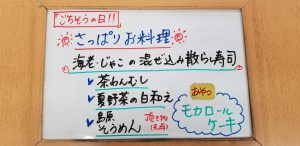 「ごちそうの日!!」
さっぱりお料理
海老・じゃこの混ぜ込み散らし寿司
✓ 茶わんむし
✓ 夏野菜の白和え
✓ 島原そうめん
おやつ
モカロール
ケーキ